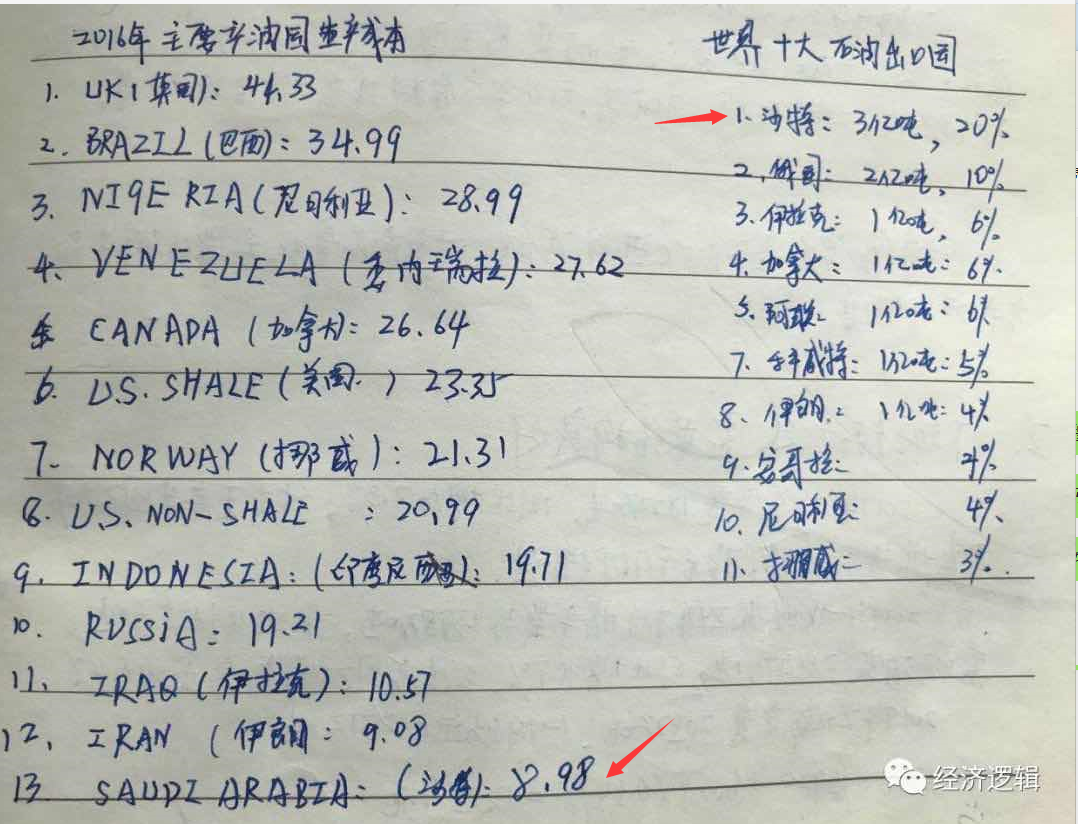 2016年主要产油国生产成本
1. UK(英国): 44.33
2. BRAZIL(巴西): 34.99
3. NIGERIA(尼日利亚): 28.99
4. VENEZUELA(委内瑞拉): 27.62
CANADA(加拿大): 26.64
6. U.S. SHALE(美国.) 23.35
7. NORWAY(挪威): 21.31
8. U.S. NON-SHALE : 20.99
9. INDONESIA:(印度尼西亚): 19.71
10. RUSSIA: 19.21
11. IRAQ(伊拉克): 10.57
12. IRAN(伊朗: 9.08
13. SAUDI ARABIA:(沙特): 8.98
世界十大石油出口国
1. 沙特: 3亿吨, 20%
2. 俄国: 2亿吨, 10%
3. 伊拉克: 1亿吨, 6%
4. 加拿大: 1亿吨: 6%
5. 阿联: 1亿吨: 6%
7. 科威特: 1亿吨: 5%
8. 伊朗: 1亿吨: 4%
9. 安哥拉: 4%
10. 尼日利亚: 4%
11. 挪威: 3%
经济逻辑